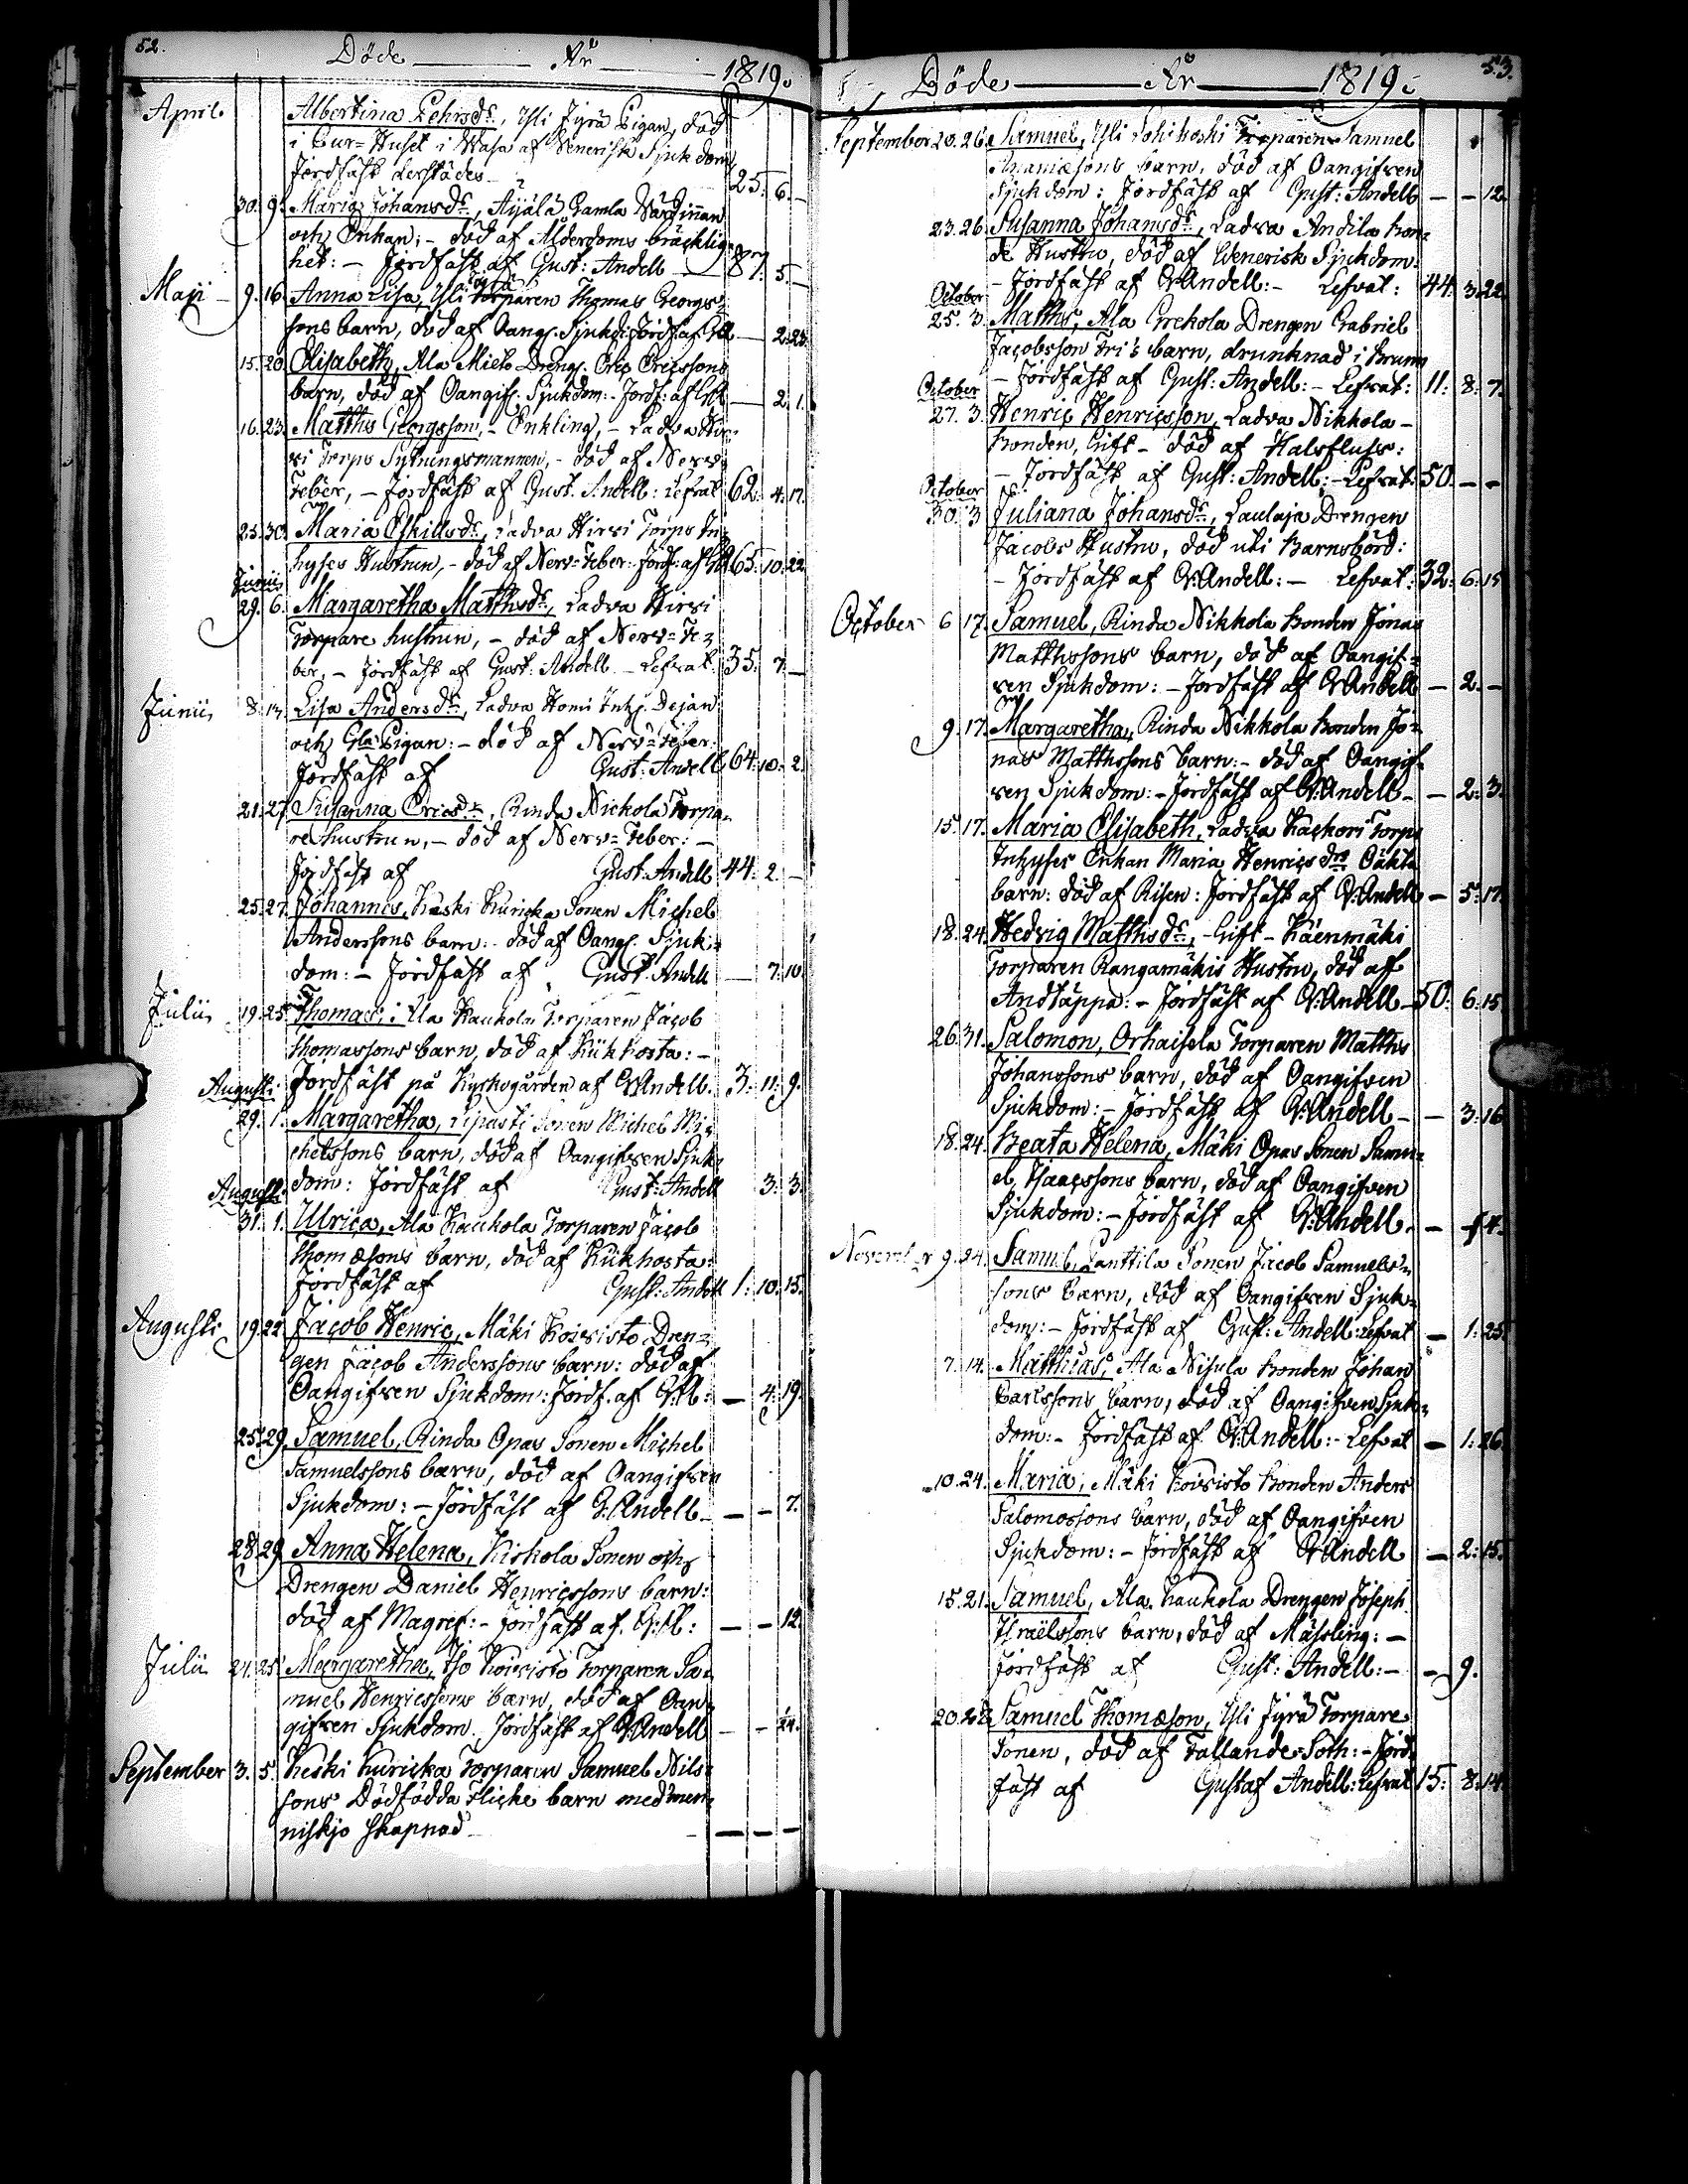 52.
Döde År 1819.
April. Albertina Pehrsdr, Yli Jyrä Pigan, död
i Cur-Huset i Wasa af Venerisk Sjukdom
Jordfäst derstädes 25. 6. –
30. 9. Maria Johansdr, Äijälä Gamla Värdinnan
och Enkan; – död af Ålderdoms bräcklig-
het: – Jordfäst af Gust: Andell – 87. 5. –
Maji 9. 16. Anna Lisa, Yli Torparen Thomas Georgs-
sons barn, död af Oang. Sjukd: Jordf. af — 2. 23.
15. 20. Elisabeth, Ala Mieto Dreng. Eric Ericssons
barn, död af Oangif. Sjukdom: – Jordf: af — 2. 1.
16. 23. Matths Georgsson, – Enkling, – Ladva Hir-
vi Torps Sytningsmannen, – död af Nerv-
Feber, – Jordfäst af Gust. Andell: Lefvat 62. 4. 17.
25. 30. Maria Eskilsdr, Ladva Hirvi Torps In-
hyses Hustrun, – död af Nerv-Feber: Jordf: af 65. 10. 22.
Junii
29. 6. Margaretha Matthsdr, Ladva Hirvi
Torpare hustrun, – död af Nerv-Fe-
ber, – Jordfäst af Gust: Andell – Lefvat: 35. 7. –
Junii 8. 13. Lisa Andersdr, Ladva Homi Inh. Dejan
och Gla Pigan: – död af Nerv-feber:
Jordfäst af Gust: Andell 64. 10. 2.
21. 27. Susanna Ericsdr, Rinda Nickola Torpa-
re hustrun, – död af Nerv-Feber: –
Jordfäst af Gust: Andell 44. 2. –
25. 27. Johannes, Keski Kuricka Sonen Michel
Anderssons barn: – död af Oang. Sjuk-
dom: – Jordfäst af Gust: Andell — 7. 10.
Julii 19. 25. Thomas, i Ala Kaukola Torparen Jacob
Thomassons barn, död af Kikhosta: –
Jordfäst på Kyrkogården af G:Andell. 3. 11. 9.
Augusti
29. 1. Margaretha, Lipasti Sonen Michel Mi-
chelssons barn, död af Oangifven Sjuk-
dom: Jordfäst af Gust: Andell 3. 3.
Augusti
31. 1. Ulrica, Ala Kaukola Torparen Jacob
Thomæsons barn, död af Kikhosta:
Jordfäst af Gust: Andell 1. 10. 15.
Augusti 19. 22. Jacob Henric, Mäki Koivisto Dren-
gen Jacob Anderssons barn: död af
Oangifven Sjukdom: Jordf. af — 4. 19.
25. 29. Samuel, Rinda Opas Sonen Michel
Samuelssons barn, död af Oangifven
Sjukdom: – Jordfäst af G:Andell – — – 7.
28. 29. Anna Helena, Kiskola Sonen och
Drengen Daniel Henricssons barn:
död af Magref: – Jordfäst af — – 12.
Julii 21. 25. Margaretha, Iso Koivisto Torparen Sa-
muel Henricssons barn, död af Oan-
gifven Sjukdom. Jordfäst af G:Andell — – 24.
September 3. 5. Keski Kuricka Torparen Samuel Nils-
sons Dödfödda Flicke barn med men-
niskjo skapnad – — — —
Döde År 1819. 53.
September 20. 26. Samuel, Yli Torparen Samuel
barn, död af Oangifven
Sjukdom: Jordfäst af Gust: Andell – – 12.
23. 26. Susanna Johansdr, Ladva Andila bon-
de Hustru, död af Venerisk Sjukdom.
– Jordfäst af G:Andell: – Lefvat: 44. 3. 22.
October
25. 3. Matths, Ala Drengen Gabriel
Jacobsson barn, drunknad i Brunn
– Jordfäst af Gust: Andell: – Lefvat: 11: 8: 7.
October
27. 3. Henric Henricsson, Ladva Nikkola –
Bonden, Gift – död af Halsfluss:
– Jordfäst af Gust: Andell; – Lefvat: 50. – –
October
30. 3. Juliana Johansdr, Laulaja Drengen
Jacobs Hustru, död uti Barnsbörd:
– Jordfäst af G:Andell: – Lefvat: 32: 6: 15
October 6 17. Samuel, Rinda Nikkola Bonden Jonas
Matthssons barn, död af Oangif-
ven Sjukdom: – Jordfäst af G:Andell – 2. –
9. 17. Margaretha, Rinda Nikkola Bonden Jo-
nas Matthssons barn: – död af Oangif-
ven Sjukdom: – Jordfäst af G:Andell – – 2. 3.
15. 17. Maria Elisabeth, Ladva Torps
Inhyses Enkan Maria Henricsdrs Oäkta
barn: död af Risen: Jordfäst af G:Andell – 5. 17.
18. 24. Hedvig Matthsdr, – Gift – Käenmäki
Torparen Rangamäkis Hustru, död af
Andtäppa: – Jordfäst af G:Andell – 50: 6: 15
26. 31. Salomon, Orhaisala Torparen Matths
Johanssons barn, död af Oangifven
Sjukdom: – Jordfäst af G:Andell – – 3. 16
18. 24. Beata Helena, Mäki Opas Sonen Samu-
el Isaacssons barn, död af Oangifven
Sjukdom: – Jordfäst af G:Andell. –
November 9. 24. Samuel, Lanttila Sonen Jacob Samuels-
sons barn, död af Oangifven Sjuk-
dom: – Jordfäst af Gust: Andell: Lefvat – 1: 25.
7. 14. Matthias, Ala Nisula Bonden Johan
Carlssons barn, död af Oangifven Sjuk-
dom: – Jordfäst af G:Andell: – Lefvat – 1: 26.
10. 24. Maria, Mäki Koivisto Bonden Anders
Salomossons barn, död af Oangifven
Sjukdom: – Jordfäst af G:Andell – 2: 15.
15. 21. Samuel, Ala Kaukola Drengen Joseph
Israëlssons barn, död af Mässling: –
Jordfäst af Gust: Andell: – – 9.
20. 28. Samuel Thomæson, Yli Jyrä Torpare
Sonen, död af Fallande-Soth: – Jord-
fäst af Gustaf Andell: Lefvat 15: 8: 14.